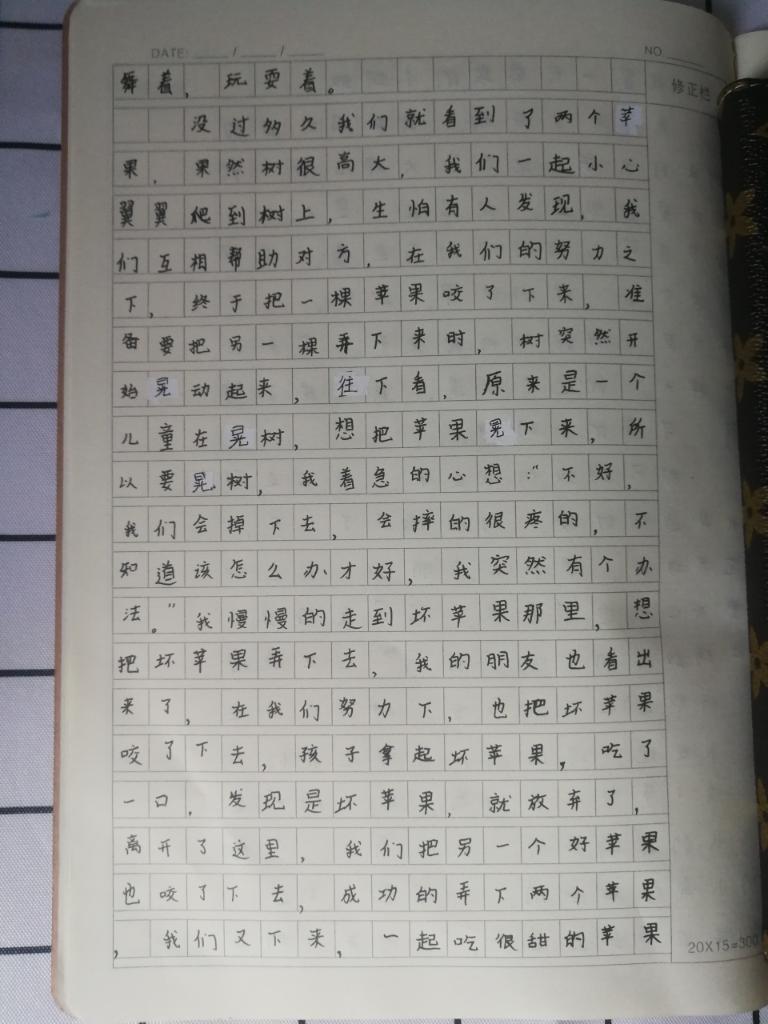 DATE: / /
NO
修正栏
舞着，玩耍着。
没过多久我们就看到了两个苹
果，果然树很高大，我们一起小心
翼翼爬到树上，生怕有人发现，我
们互相帮助对方，在我们的努力之
下，终于把一棵苹果咬了下来，准
备要把另一棵弄下来时，树突然开
始晃动起来，往下看，原来是一个
儿童在晃树，想把苹果晃下来，所
以要晃树，我着急的心想：“不好，
我们会掉下去，会摔的很疼的，不
知道该怎么办才好，我突然有个办
法。”我慢慢的走到坏苹果那里，想
把坏苹果弄下去，我的朋友也看出
来了，在我们努力下，也把坏苹果
咬了下去，孩子拿起坏苹果，吃了
一口，发现是坏苹果，就放弃了，
离开了这里，我们把另一个好苹果
也咬了下去，成功的弄下两个苹果
，我们又下来，一起吃很甜的苹果
20X15=300